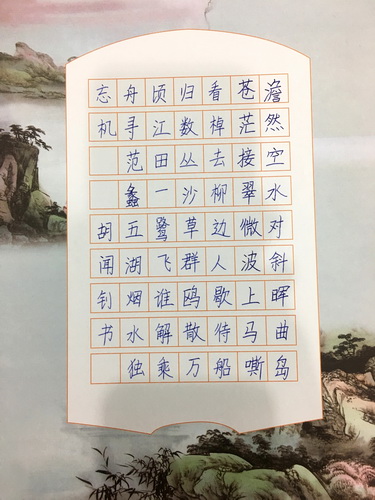 澹然空水对斜晖曲岛
苍茫接翠微波上马嘶
看棹去柳边人歇待船
归数丛沙草群鸥散万
顷江田一鹭飞谁解乘
舟寻范蠡五湖烟水独
忘机 胡闻钊书